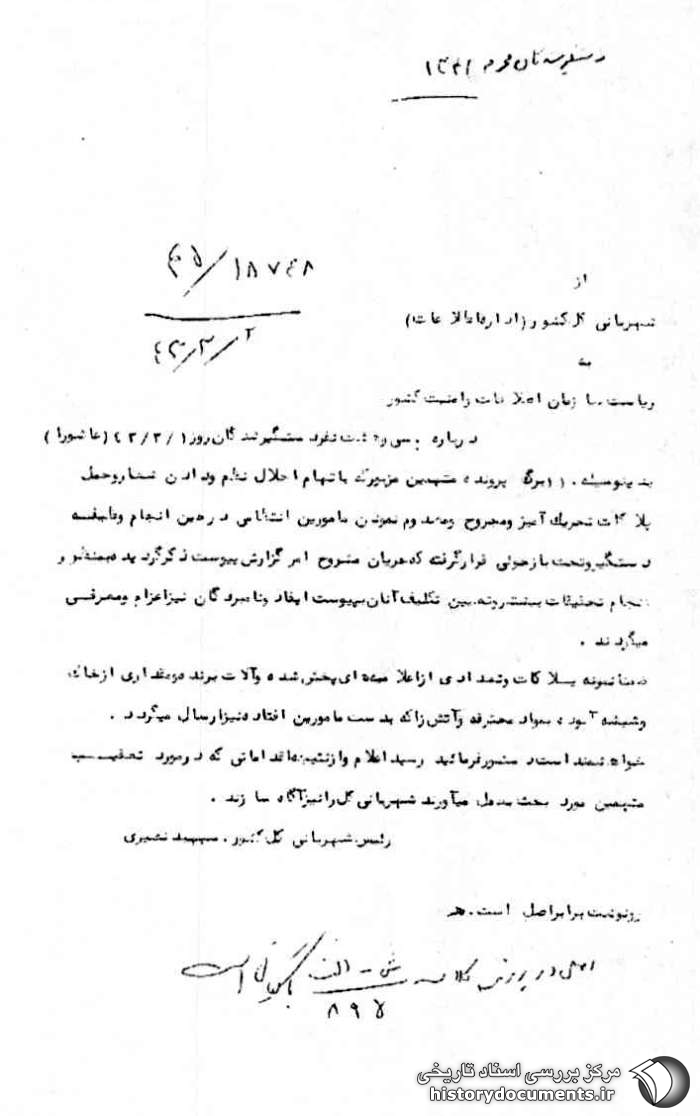 دستگیرشدگان محرم ۱۳۴۲
۴۵/۱۸۷۴۸
۴۲/۳/۲
از
شهربانی کل کشور (اداره اطلاعات)
به
ریاست سازمان اطلاعات و امنیت کشور
درباره سی و هشت نفر دستگیرشدگان روز (عاشورا)
بدینوسیله برگ پرونده متهمین مزبور که باتهام اخلال نظم و دادن شعار و حمل
پلاکات تحریک آمیز و مجروح و مصدوم نمودن مامورین انتظامی در حین انجام وظیفه
دستگیر و تحت بازجوئی قرار گرفته که جریان مشروح امر گزارش پیوست ذکر گردیده بمنظور
انجام تحقیقات بیشتر و تعیین تکلیف آنان بپیوست ایفاد و نامبردگان نیز اعزام و معرفی
میگردند .
ضمنا نمونه پلاکات و تعدادی از اعلامیه های پخش شده و آلات برنده و مقداری از خاک
و شیشه آلوده بمواد محترقه و آتش زا که بدست مامورین افتاده نیز ارسال میگردد .
خواهشمند است دستور فرمائید رسید اعلام و از نتیجه اقداماتی که در مورد تعقیب
متهمین مورد بحث بعمل میآورند شهربانی کل را نیز آگاه سازند .
رئیس شهربانی کل کشور . سپهبد نصیری
رونوشت برابر اصل است . هـ
اصل در پرونده کلاسه ش - الف بایگانی است
۸۹۵
مرکز بررسی اسناد تاریخی
historydocuments.ir